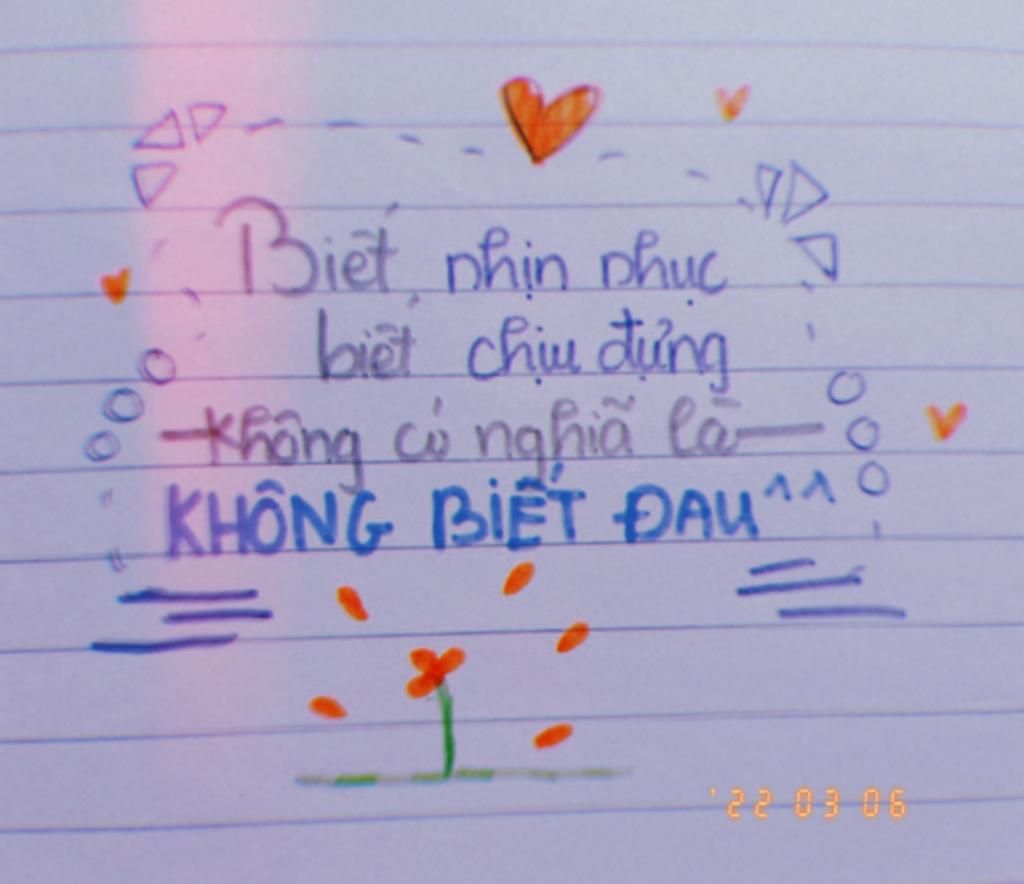 Biết nhịn nhục
biết chịu đựng
Không có nghiã là
KHÔNG BIẾT ĐAU^^
'22 03 06